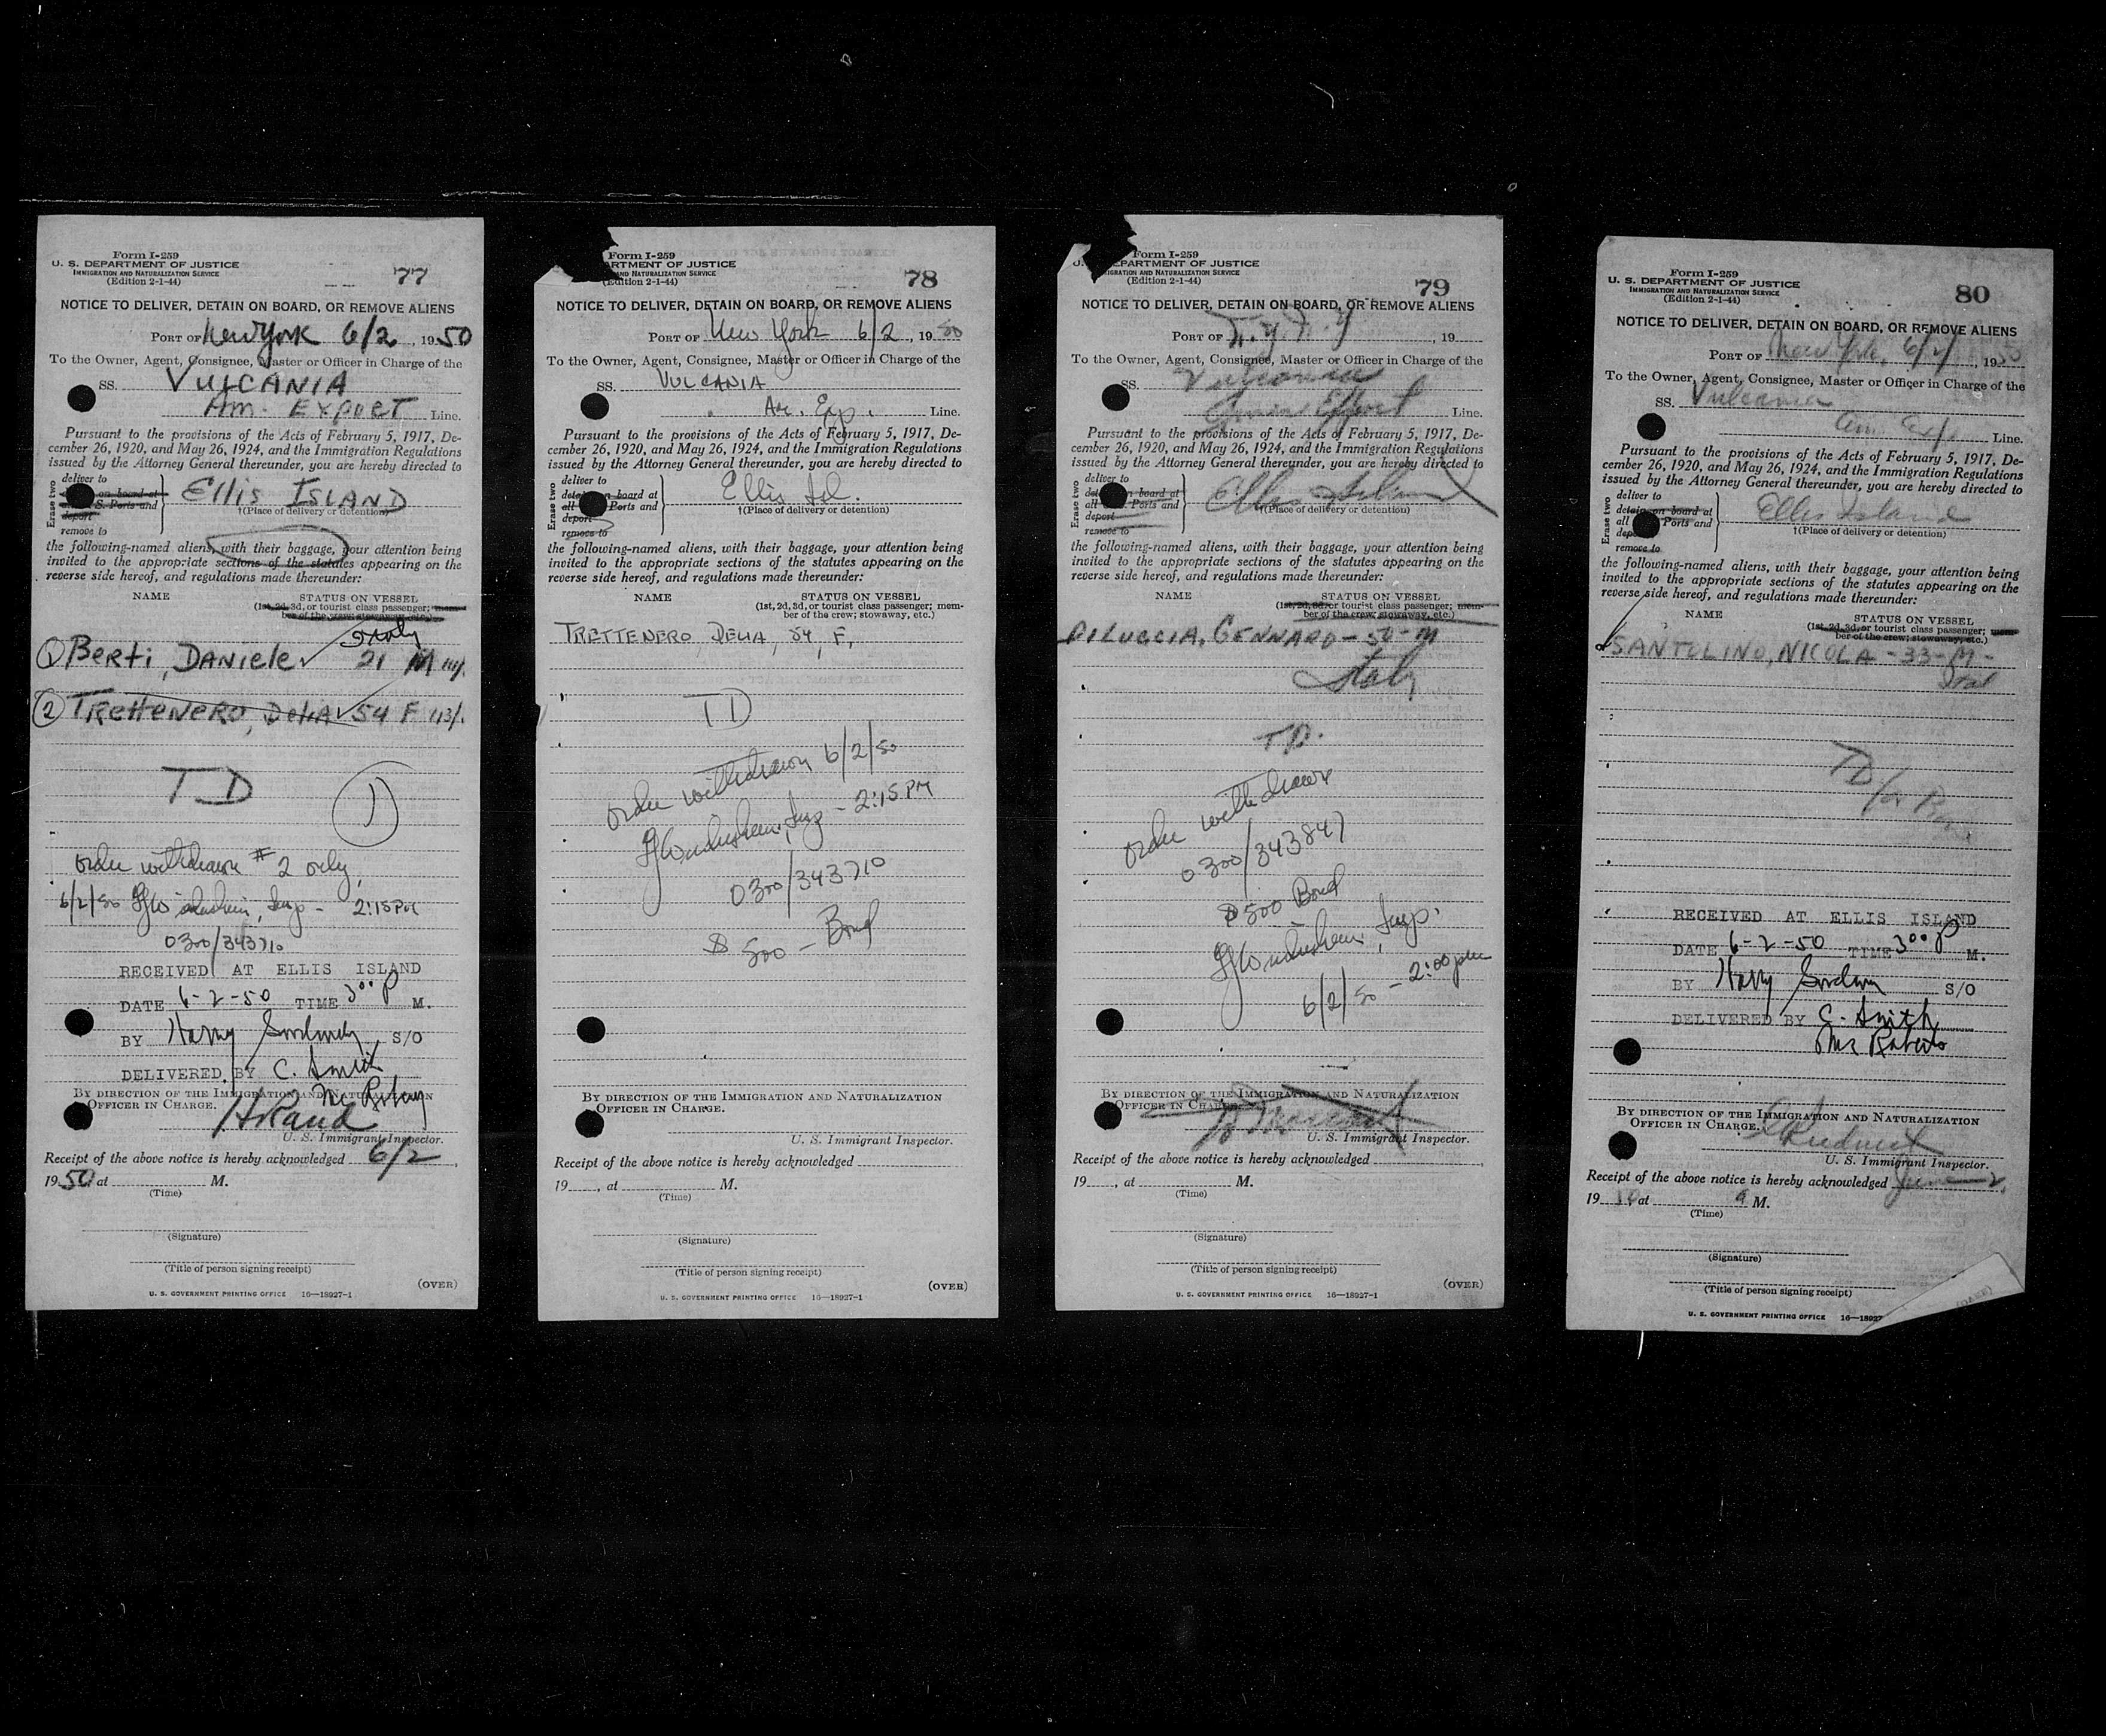 Form I-259
U. S. DEPARTMENT OF JUSTICE
IMMIGRATION AND NATURALIZATION SERVICE
(Edition 2-1-44)
77
NOTICE TO DELIVER, DETAIN ON BOARD, OR REMOVE ALIENS
PORT OF New York 6/2, 1950
To the Owner, Agent, Consignee, Master or Officer in Charge of the
SS. VULCANIA
Am. Export Line.
Pursuant to the provisions of the Acts of February 5, 1917, De-
cember 26, 1920, and May 26, 1924, and the Immigration Regulations
issued by the Attorney General thereunder, you are hereby directed to
Erase two
deliver to
on board at
S. Ports and
deport
remove to
Ellis ISLAND
†(Place of delivery or detention)
the following-named aliens, with their baggage, your attention being
invited to the appropriate sections of the statutes appearing on the
reverse side hereof, and regulations made thereunder:
NAME STATUS ON VESSEL
(1st, 2d, 3d, or tourist class passenger; mem-
ber of the crew, stowaway, etc.)
Italy
1 Berti, DANIele 21 M
2 TRETTENERO, DELIA 54 F
TD
1
Order withdrawn #2 only
6/2/50 Insp - 2:15 PM
0300/343710
RECEIVED AT ELLIS ISLAND
DATE 6-2-50 TIME 3:00 P M.
BY Harry S/O
DELIVERED BY C. Smith
BY DIRECTION OF THE IMMIGRATION AND NATURALIZATION
OFFICER IN CHARGE.
U. S. Immigrant Inspector.
Receipt of the above notice is hereby acknowledged 6/2,
1950, at M.
(Time)
(Signature)
(Title of person signing receipt)
(OVER)
U. S. GOVERNMENT PRINTING OFFICE 16—18927-1
Form I-259
ARTMENT OF JUSTICE
AND NATURALIZATION SERVICE
(Edition 2-1-44)
78
NOTICE TO DELIVER, DETAIN ON BOARD, OR REMOVE ALIENS
PORT OF New York 6/2, 1950
To the Owner, Agent, Consignee, Master or Officer in Charge of the
SS. VULCANIA
Am. Exp. Line.
Pursuant to the provisions of the Acts of February 5, 1917, De-
cember 26, 1920, and May 26, 1924, and the Immigration Regulations
issued by the Attorney General thereunder, you are hereby directed to
Erase two
deliver to
board at
all Ports and
deport
remove to
Ellis Isl.
†(Place of delivery or detention)
the following-named aliens, with their baggage, your attention being
invited to the appropriate sections of the statutes appearing on the
reverse side hereof, and regulations made thereunder:
NAME STATUS ON VESSEL
(1st, 2d, 3d, or tourist class passenger; mem-
ber of the crew; stowaway, etc.)
TRETTENERO DELIA, 54, F,
TD
Order withdrawn 6/2/50
Insp - 2:15 PM
0300/343710
$500 - Bond
BY DIRECTION OF THE IMMIGRATION AND NATURALIZATION
OFFICER IN CHARGE.
U. S. Immigrant Inspector.
Receipt of the above notice is hereby acknowledged
19, at M.
(Time)
(Signature)
(Title of person signing receipt)
(OVER)
U. S. GOVERNMENT PRINTING OFFICE 16—18927-1
Form I-259
ARTMENT OF JUSTICE
IGRATION AND NATURALIZATION SERVICE
(Edition 2-1-44)
79
NOTICE TO DELIVER, DETAIN ON BOARD, OR REMOVE ALIENS
PORT OF N.Y. N.Y, 19
To the Owner, Agent, Consignee, Master or Officer in Charge of the
SS. Vulcania
Export Line.
Pursuant to the provisions of the Acts of February 5, 1917, De-
cember 26, 1920, and May 26, 1924, and the Immigration Regulations
issued by the Attorney General thereunder, you are hereby directed to
Erase two
deliver to
board at
all Ports and
deport
remove to
Ellis Island
†(Place of delivery or detention)
the following-named aliens, with their baggage, your attention being
invited to the appropriate sections of the statutes appearing on the
reverse side hereof, and regulations made thereunder:
NAME STATUS ON VESSEL
(1st, 2d, 3d, or tourist class passenger; mem-
ber of the crew; stowaway, etc.)
DILUCCIA, GENNARO - 50 - M
Italy
T.D.
Order withdrawn
0300/343847
$500 Bond
Insp.
6/2/50 - 2:00 pm
BY DIRECTION OF THE IMMIGRATION AND NATURALIZATION
OFFICER IN CHARGE.
U. S. Immigrant Inspector.
Receipt of the above notice is hereby acknowledged
19, at M.
(Time)
(Signature)
(Title of person signing receipt)
(OVER)
U. S. GOVERNMENT PRINTING OFFICE 16—18927-1
Form I-259
U. S. DEPARTMENT OF JUSTICE
IMMIGRATION AND NATURALIZATION SERVICE
(Edition 2-1-44)
80
NOTICE TO DELIVER, DETAIN ON BOARD, OR REMOVE ALIENS
PORT OF New York, 6/2, 1950
To the Owner, Agent, Consignee, Master or Officer in Charge of the
SS. Vulcania
Am. Exp. Line.
Pursuant to the provisions of the Acts of February 5, 1917, De-
cember 26, 1920, and May 26, 1924, and the Immigration Regulations
issued by the Attorney General thereunder, you are hereby directed to
Erase two
deliver to
detain on board at
all Ports and
remove to
Ellis Island
†(Place of delivery or detention)
the following-named aliens, with their baggage, your attention being
invited to the appropriate sections of the statutes appearing on the
reverse side hereof, and regulations made thereunder:
NAME STATUS ON VESSEL
(1st, 2d, 3d, or tourist class passenger; mem-
ber of the crew; stowaway, etc.)
SANTOLINO, NICOLA - 33 - M -
Ital
TD
RECEIVED AT ELLIS ISLAND
DATE 6-2-50 TIME 3:00 P M.
BY Harry S/O
DELIVERED BY C. Smith
BY DIRECTION OF THE IMMIGRATION AND NATURALIZATION
OFFICER IN CHARGE.
U. S. Immigrant Inspector.
Receipt of the above notice is hereby acknowledged June 2,
19, at M.
(Time)
(Signature)
(Title of person signing receipt)
U. S. GOVERNMENT PRINTING OFFICE 16—18927